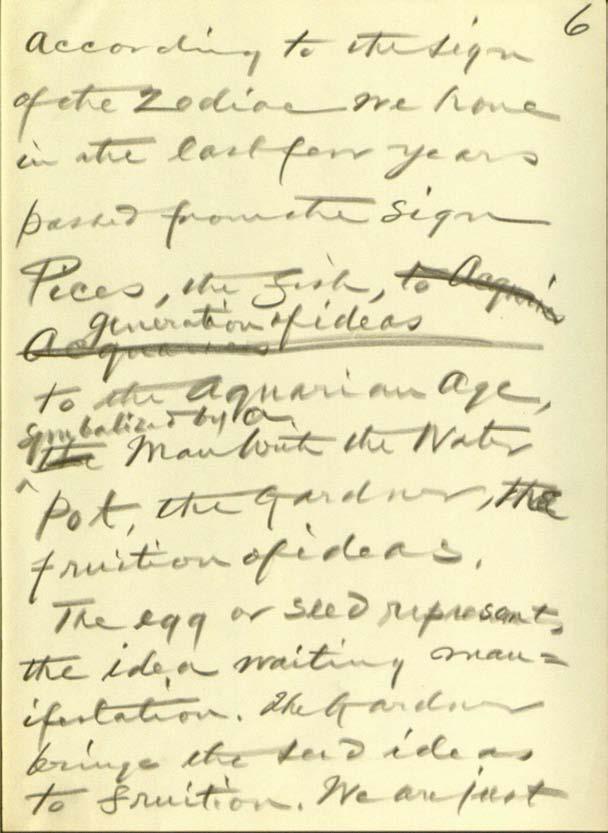 6
According to the sign
of the Zodiac we have
in the last few years
passed from the sign
Pices, the fish, to Aquaries
generation of ideas
Acquaries
to the Aquarian Age,
symbalized by a
the Man with the Water
Pot, the Gardner, the
fruition of ideas.
The egg or seed represents
the idea waiting man=
ifestation. The Gardner
brings the seed ideas
to fruition. We are just